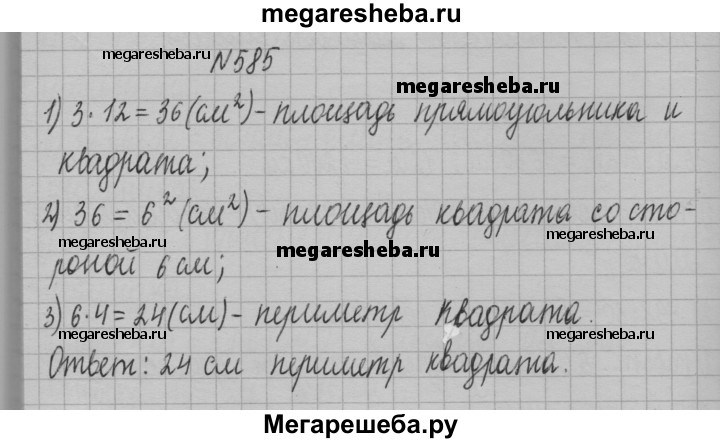 megaresheba.ru
megaresheba.ru
№585
megaresheba.ru
1) 3·12=36(см²)-площадь прямоугольника и
квадрата;
2) 36=6²(см²)-площадь квадрата со сто-
megaresheba.ru
megaresheba.ru
megaresheba.ru
роной 6 см;
3) 6·4=24(см)-периметр квадрата.
megaresheba.ru
megaresheba.ru
Ответ: 24 см периметр квадрата.
Мегарешеба.ру